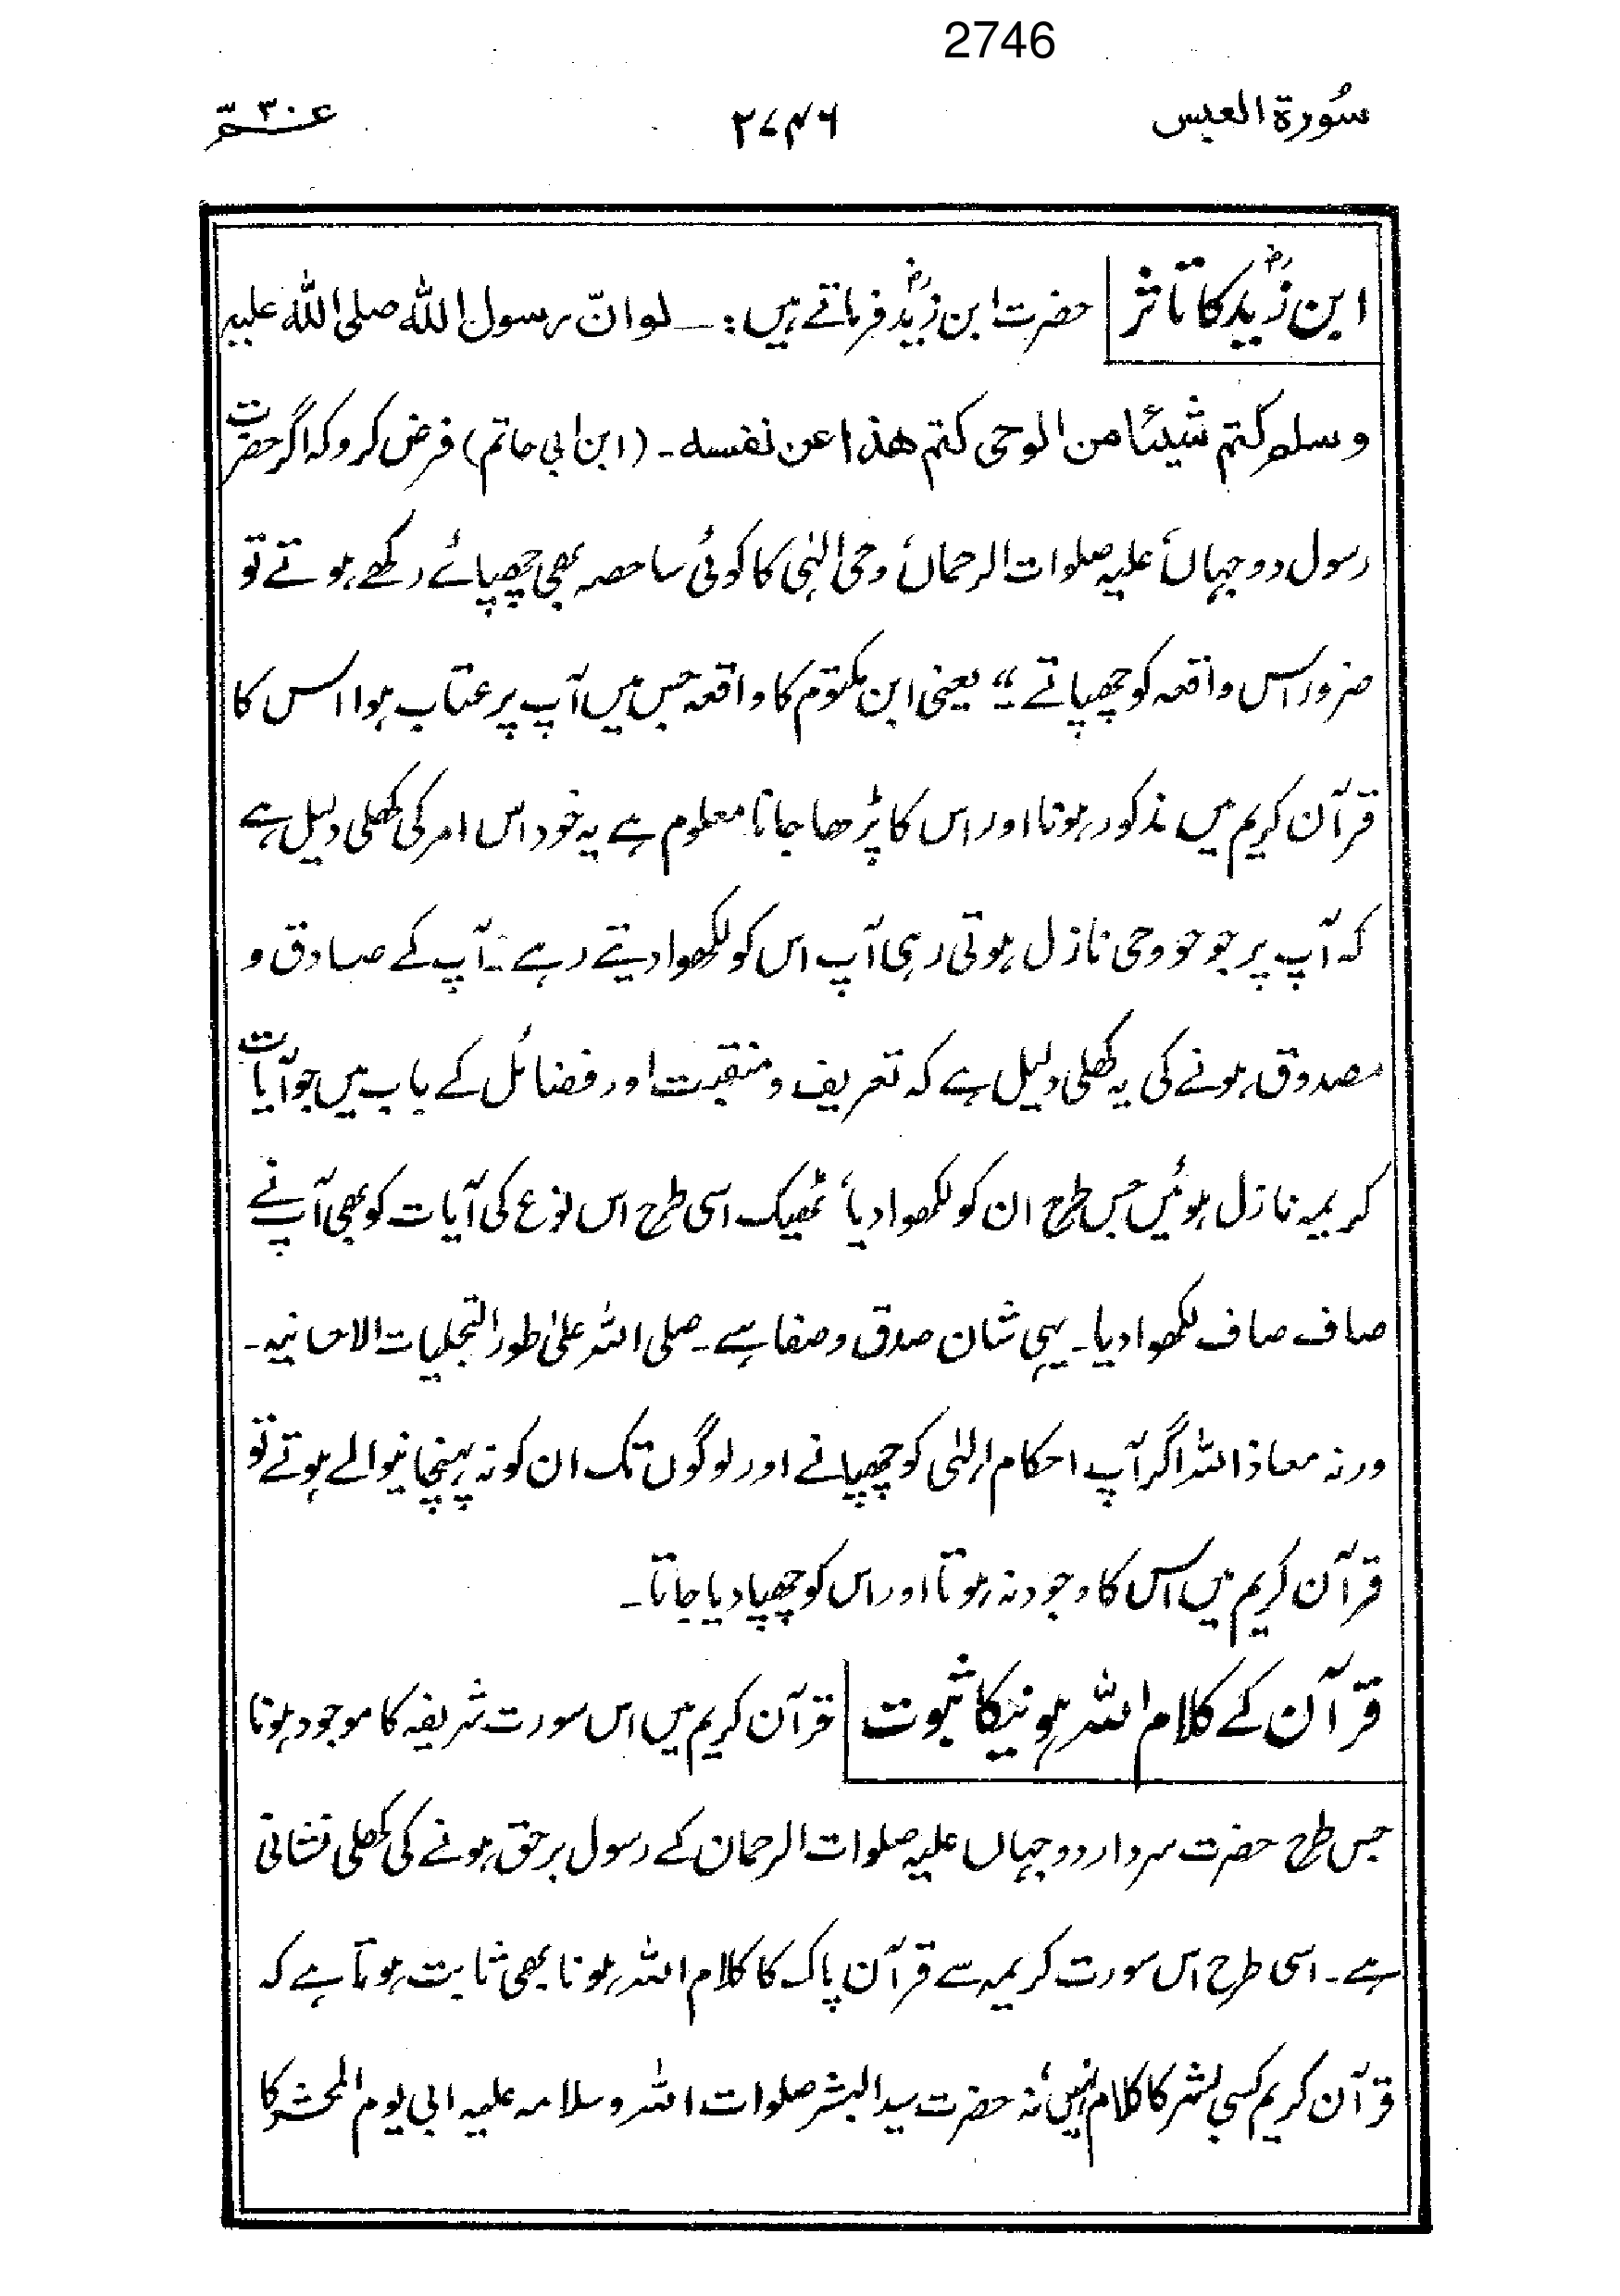 2746
سُورة العبس ۲۷۴۶ عمّ ۳۰
ابن زیدؓ کا تأثر حضرت ابن زیدؓ فرماتے ہیں :ـ لو انّ رسول الله صلی الله علیه
وسلم کتم شیئًا من الوحی کتم هذا عن نفسه ۔ (ابن ابی حاتم) فرض کرو کہ اگر حضرت
رسول دوجہاںؐ علیہ صلوات الرحمانؐ وحی الٰہی کا کوئی سا حصہ بھی چھپائے رکھے ہوتے تو
ضرور اس واقعہ کو چھپاتے“ یعنی ابن مکتومؓ کا واقعہ جس میں آپ پر عتاب ہوا اس کا
قرآن کریم میں مذکور ہونا اور اس کا پڑھا جانا معلوم ہے یہ خود اس امر کی کھلی دلیل ہے
کہ آپ پر جو جو وحی نازل ہوتی رہی آپ اس کو لکھوا دیتے رہے ۔ آپ کے صادق و
مصدوق ہونے کی یہ کھلی دلیل ہے کہ تعریف و منقبت اور فضائل کے باب میں جو آیات
کریمہ نازل ہوئیں جس طرح ان کو لکھوا دیا، ٹھیک اسی طرح اس نوع کی آیات کو بھی آپ نے
صاف صاف لکھوا دیا ۔ یہی شان صدق و صفا ہے ۔ صلی اللہ علیٰ طور التجلیات الاحسانیہ ۔
ورنہ معاذ اللہ اگر آپ احکام الٰہی کو چھپانے اور لوگوں تک ان کو نہ پہنچانیوالے ہوتے تو
قرآن کریم میں اس کا وجود نہ ہوتا اور اس کو چھپا دیا جاتا ۔
قرآن کے کلام اللہ ہونیکا ثبوت قرآن کریم میں اس سورت شریفہ کا موجود ہونا
جس طرح حضرت سردار دوجہاں علیہ صلوات الرحمان کے رسول برحق ہونے کی کھلی نشانی
ہے ۔ اسی طرح اس سورت کریمہ سے قرآن پاک کا کلام اللہ ہونا بھی ثابت ہوتا ہے کہ
قرآن کریم کسی بشر کا کلام نہیں، نہ حضرت سید البشر صلوات اللہ و سلامہ علیہ ابی یوم المحشر کا